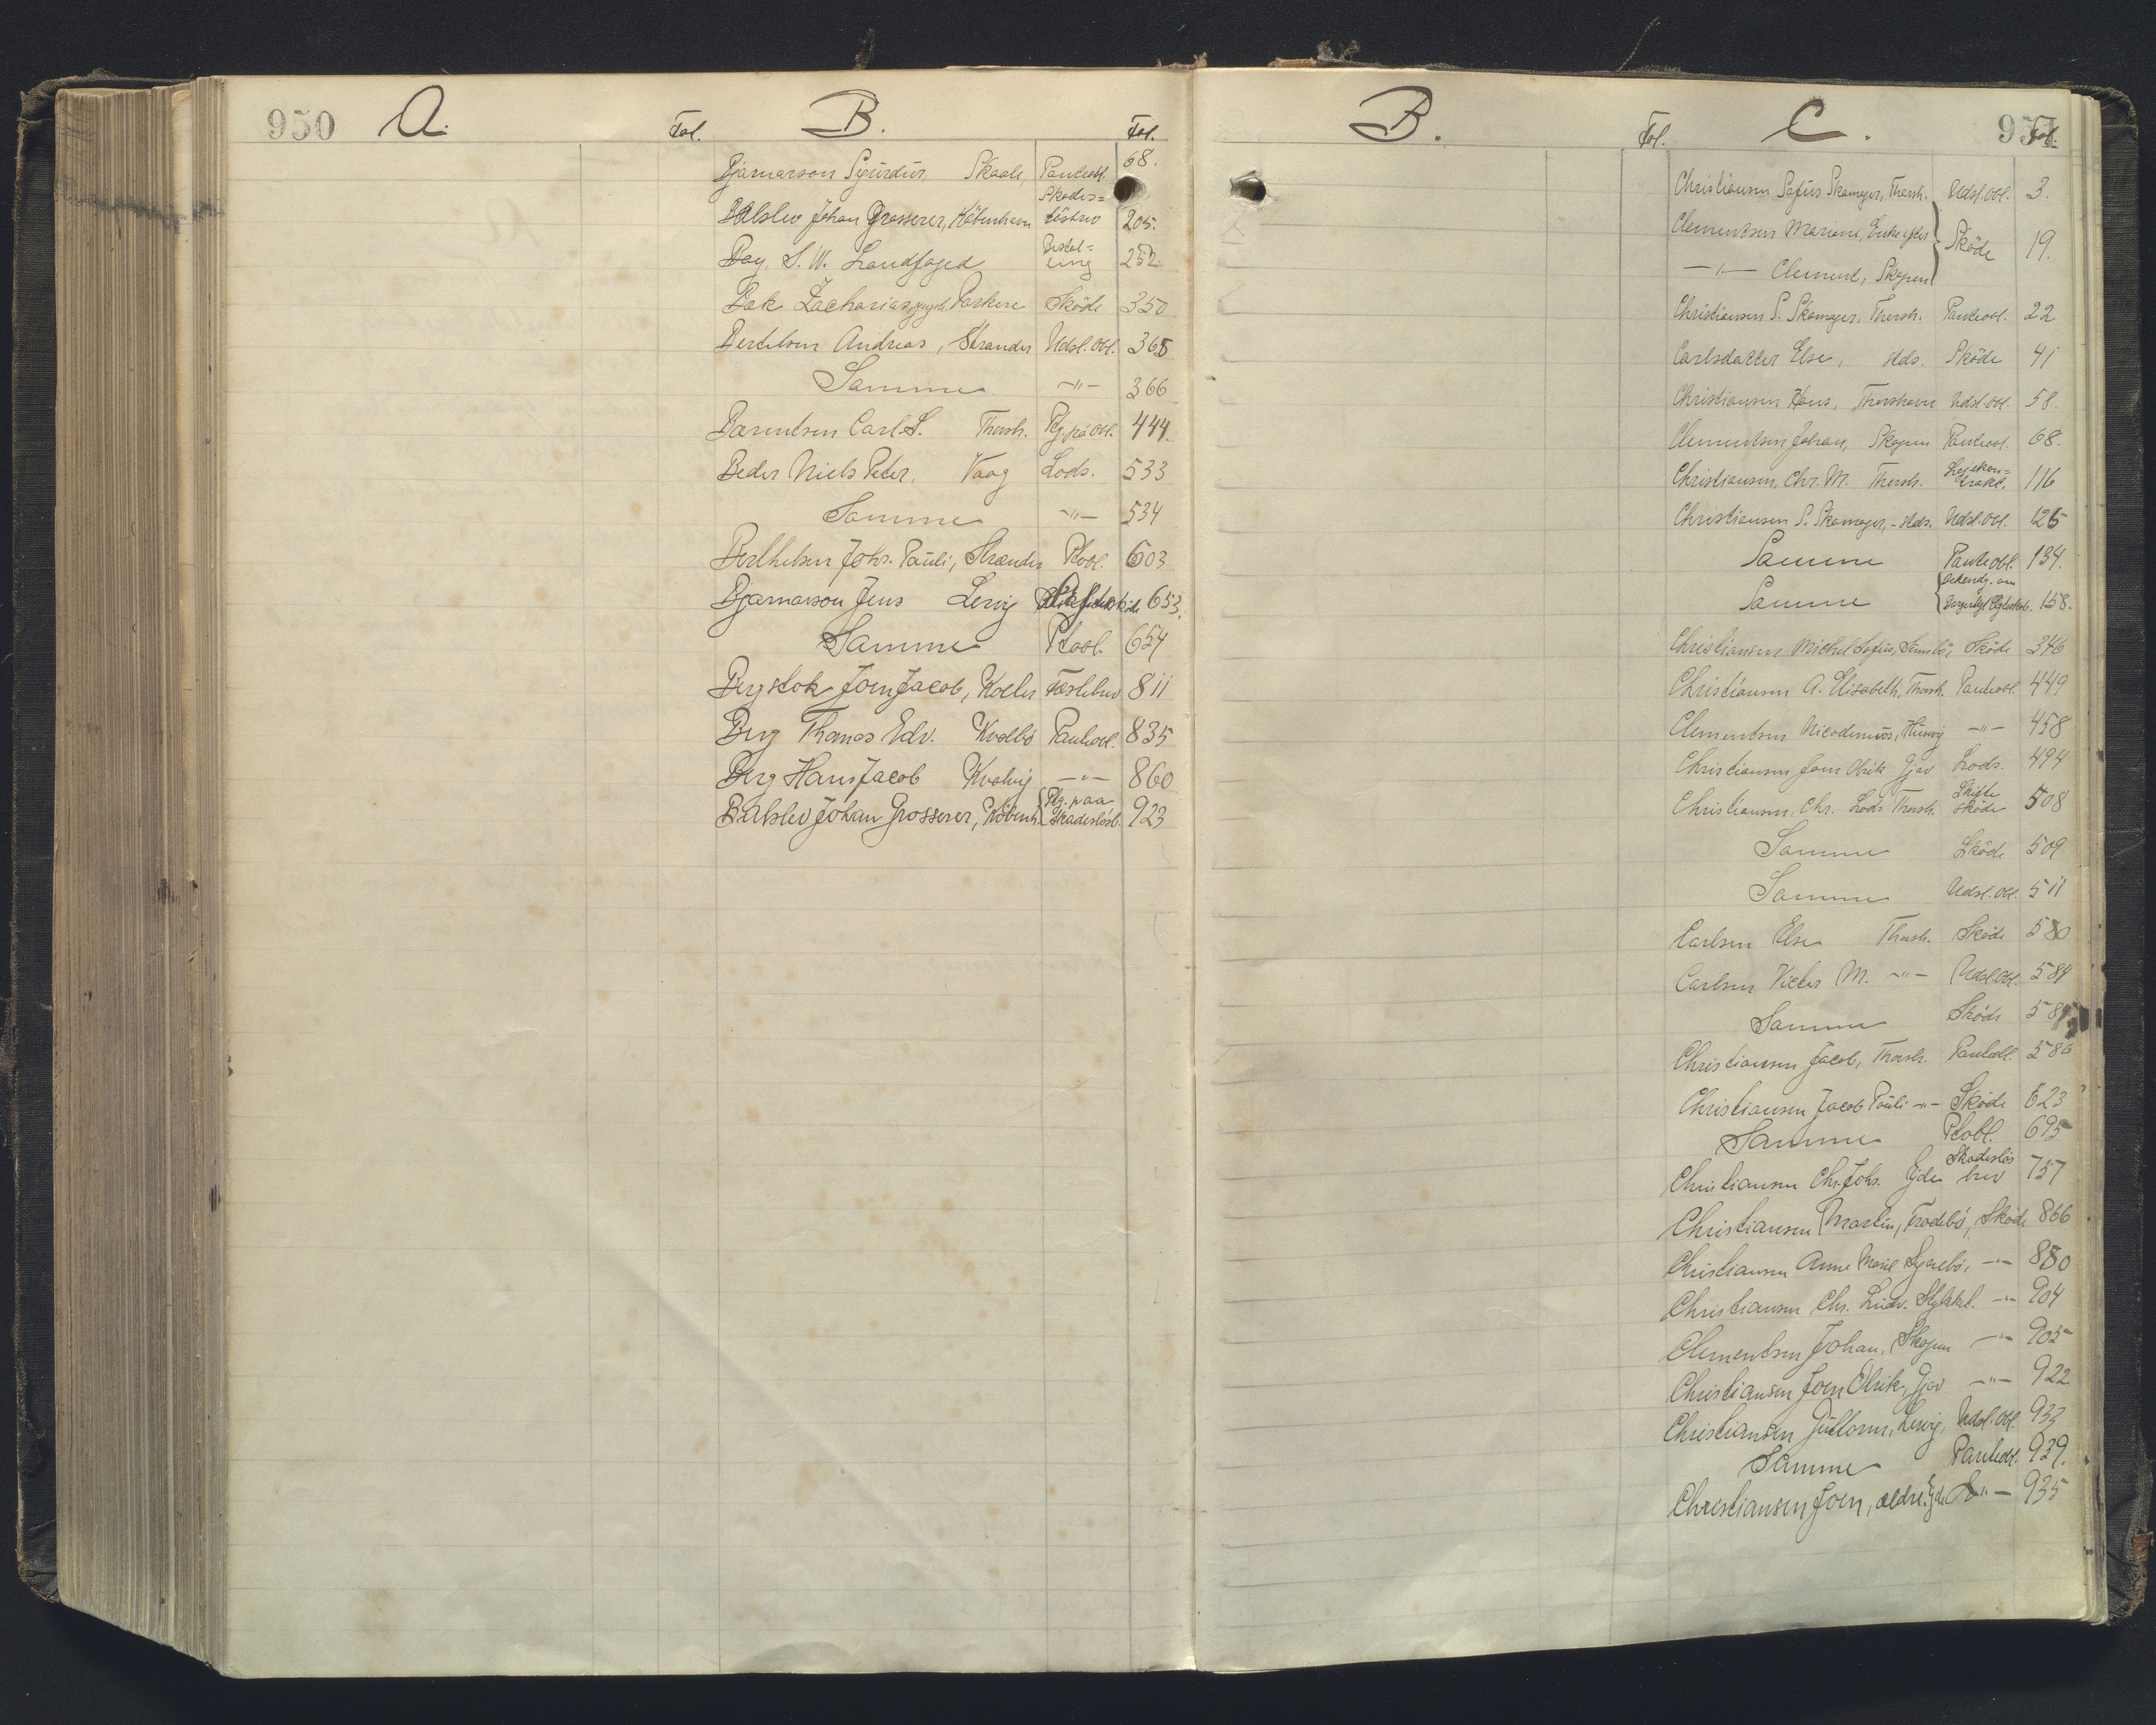 950 A. Fol. B. Fol.
Bjarnarson Sigurdur, Skaale, Panteobl. 68.
Balslev Johan Grosserer, Köbenhavn Skadeslösbrev 205.
Bay S. W. Landfoged 252
Bak Zacharias, Porkere Sköde 350
Bertelsen Andreas, Strander Udsl. Obl. 365
Samme -"- 366
Barentsen Carl S. Thorsh. Ptg. på Obl. 444.
Beder Niels Peter, Vaag Lods. 533
Samme -"- 534
Berthelsen Johs. Pauli, Strander Ptobl. 603
Bjarnarson Jens Lervig 653.
Samme Ptobl. 654
Bergstok Joen Jacob, Kolter Fæstebrev 811
Berg Thomas Edv. Kvalbö Panteobl. 835
Berg Hans Jacob Kvalvig -"- 860
Balslev Johan Grosserer, Köbenh. Ptg. paa Skadeslösb. 923
B. Fol. C. 951 Fol.
Christiansen Sofus Skomager, Thorsh. Udsl. Obl. 3.
Clementsen Mariane, Enke efter } Sköde 19.
-"- Clement, Skopen
Christiansen S. Skomager, Thorsh. Panteobl. 22
Carlsdatter Else, stds. Sköde 41
Christiansen Hans, Thorshavn Udsl. Obl. 58
Clementsen Johan, Skopen Panteobl. 68.
Christiansen, Chr. M. Thorsh. Lejekontrakt. 116
Christiansen S. Skomager, - stds. Udsl. Obl. 125
Samme Panteobl. 134.
Samme 158.
Christiansen Michel Sofus, Sumbö, Sköde 346
Christiansen A. Elisabeth, Thorsh. Panteobl. 449
Clementsen Nicodemus, Husevig -"- 458
Christiansen Joen Olrik Gjov Lods. 494
Christiansen, Chr. Lods Thorsh. Skifte sköde 508
Samme Sköde 509
Samme Udsl. Obl. 511
Carlsen Else Thorsh. Sköde 580
Carlsen Victor M. -"- Udsl. Obl. 584
Samme Sköde 585
Christiansen Jacob, Thorsh. Panteobl. 586
Christiansen Jacob Pauli -"- Sköde 623
Samme Ptobl. 695
Christiansen Chr. Johs. Ejde Skadeslösbrev 757
Christiansen Martin, Frodebö, Sköde 866
Christiansen Anne Marie -"- 880
Christiansen Chr. Ludv. -"- 904
Clementsen Johan, Skopen -"- 905
Christiansen Joen Olrik, Gjov -"- 922
Christiansen Guttorm, Lervig, Udsl. Obl. 933
Samme Panteobl. 939.
Christiansen Joen, ældre, Ejde -"- 935